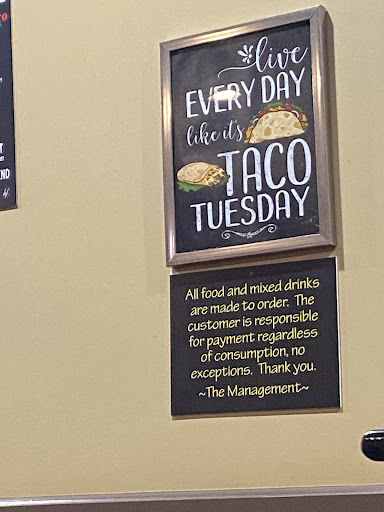 live
EVERY DAY
like it's
TACO
TUESDAY
All food and mixed drinks
are made to order. The
customer is responsible
for payment regardless
of consumption, no
exceptions. Thank you.
~The Management~